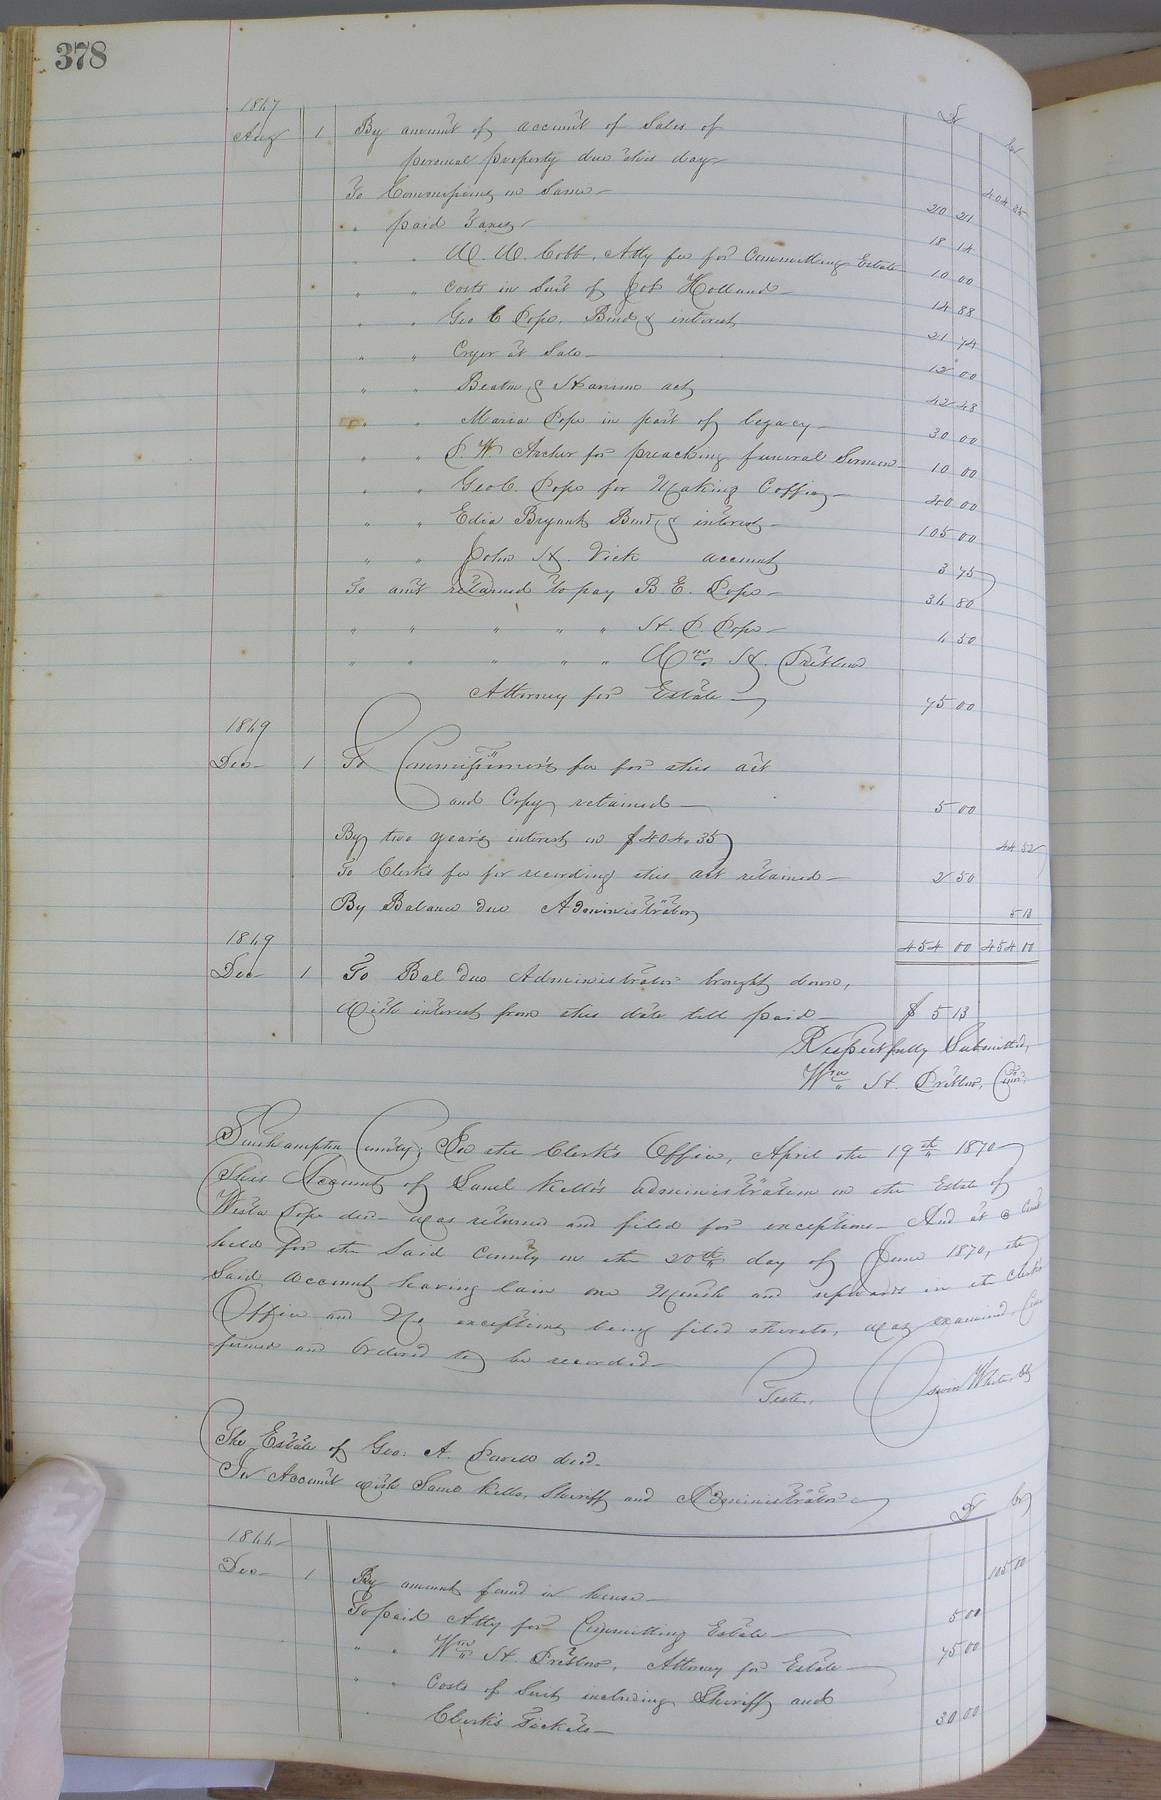 378
1867 Dr Cr
Aug 1 By amount of account of Sales of
personal property due this day 404 35
To Commissions on Same 20 21
" paid Taxes 18 14
" " W. W. Cobb, Atty fee for Committing Estate 10 00
" " Costs in Suit of Job Holland 14 88
" " Geo C Pope, Bond & interest 21 74
" " Cryer at Sale 12 00
" " Beaton & act 42 48
" " Maria Pope in part of legacy 30 00
" " P W Archer for preaching funeral Sermon 10 00
" " Geo C. Pope for Making Coffin 40 00
" " Edia Bryant Bond & interest 105 00
" " John H. Vick account 3 75
To amt retained to pay B E. Pope 36 80
" " " " " H. P. Pope 6 50
" " " " " Wm H. Pretlow
Attorney for Estate 75 00
1869
Dec 1 To Commissioner's fee for this act
and Copy retained 5 00
By two year's interest on $404.35 44 52
To Clerk's fee for recording this act retained 2 50
By Balance due Administrator 5 13
454 00 454 00
1869
Dec 1 To Bal due Administrator brought down,
With interest from this date till paid $ 5 13
Respectfully Submitted,
Wm H. Pretlow, Comr.
Southampton County: In the Clerk's Office, April the 19th 1870
This Account of Saml Kello's administration on the Estate of
Pope decd was returned and filed for exceptions. And at a Court
held for the Said County on the 20th day of June 1870, the
Said Account having lain one Month and upwards in the Clerk's
Office and No exceptions being filed thereto, was examined, Con
firmed and Ordered to be recorded
Teste, White Clk
The Estate of Geo. A. Powell decd.
In Account with Saml Kello, Sheriff and Administrator Dr Cr
1866
Dec 1 By amount found in house 105 00
To paid Atty for Committing Estate 5 00
" " Wm H. Pretlow, Attorney for Estate 75 00
" " Costs of Suit including Sheriff and
Clerk's Tickets 30 00